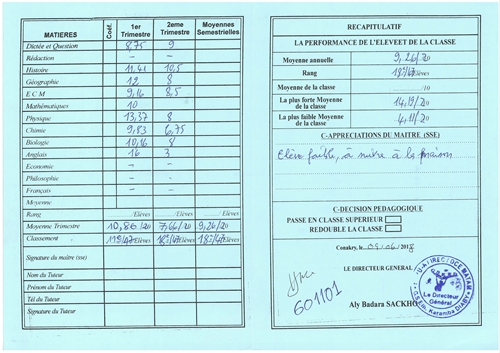 MATIERES Coéf. 1er Trimestre 2eme Trimestre Moyennes Semestrielles
Dictée et Question 8,75 9
Rédaction - -
Histoire 11,41 10,5
Géographie 12 8
E C M 9,16 8,5
Mathématiques 10
Physique 13,37 8
Chimie 9,83 6,75
Biologie 10,16 8
Anglais 16 3
Economie - -
Philosophie - -
Français - -
Moyenne
Rang /Elèves /Elèves /Elèves
Moyenne Trimestre 10,86/20 7,66/20 9,26/20
Classement /47Elèves /47Elèves /47Elèves
Signature du maître (sse)
Nom du Tuteur
Prénom du Tuteur
Tél du Tuteur
Signature du Tuteur
RECAPITULATIF
LA PERFORMANCE DE L'ELEVEET DE LA CLASSE
Moyenne annuelle 9,26/20
Rang /47Elèves
Moyenne de la classe /20
La plus forte Moyenne de la classe 14,19/20
La plus faible Moyenne de la classe 4,11/20
C-APPRECIATIONS DU MAITRE (SSE)
Elève faible, à suivre à la maison
C-DECISION PEDAGOGIQUE
PASSE EN CLASSE SUPERIEUR
REDOUBLE LA CLASSE
Conakry, le 09/06/2018
LE DIRECTEUR GENERAL
601101
Le Directeur Général
Aly Badara SACKHO